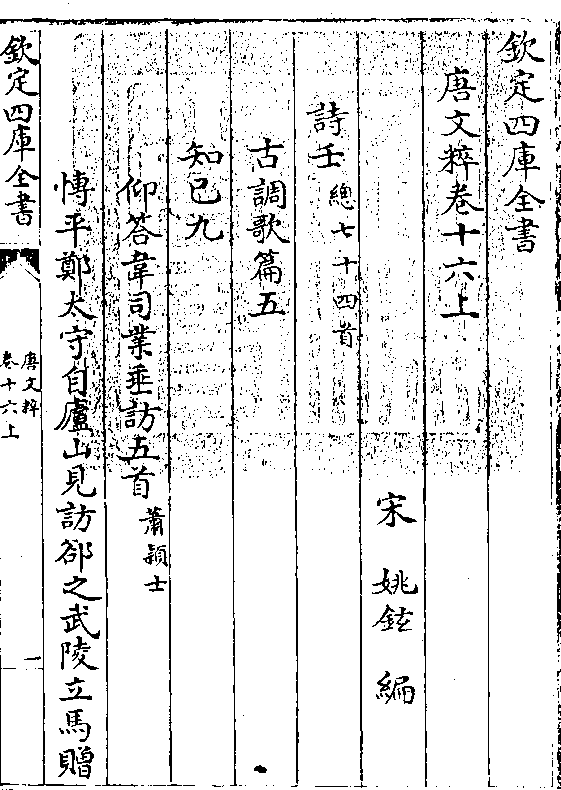 欽定四庫全書
唐文粹卷十六上
宋 姚鉉 編
詩壬總七十四首
古調歌篇五
知己九
仰荅韋司業垂訪五首蕭穎士
愽平鄭太守自廬山見訪郤之武陵立馬贈
欽定四庫全書
唐文粹
卷十六上
一